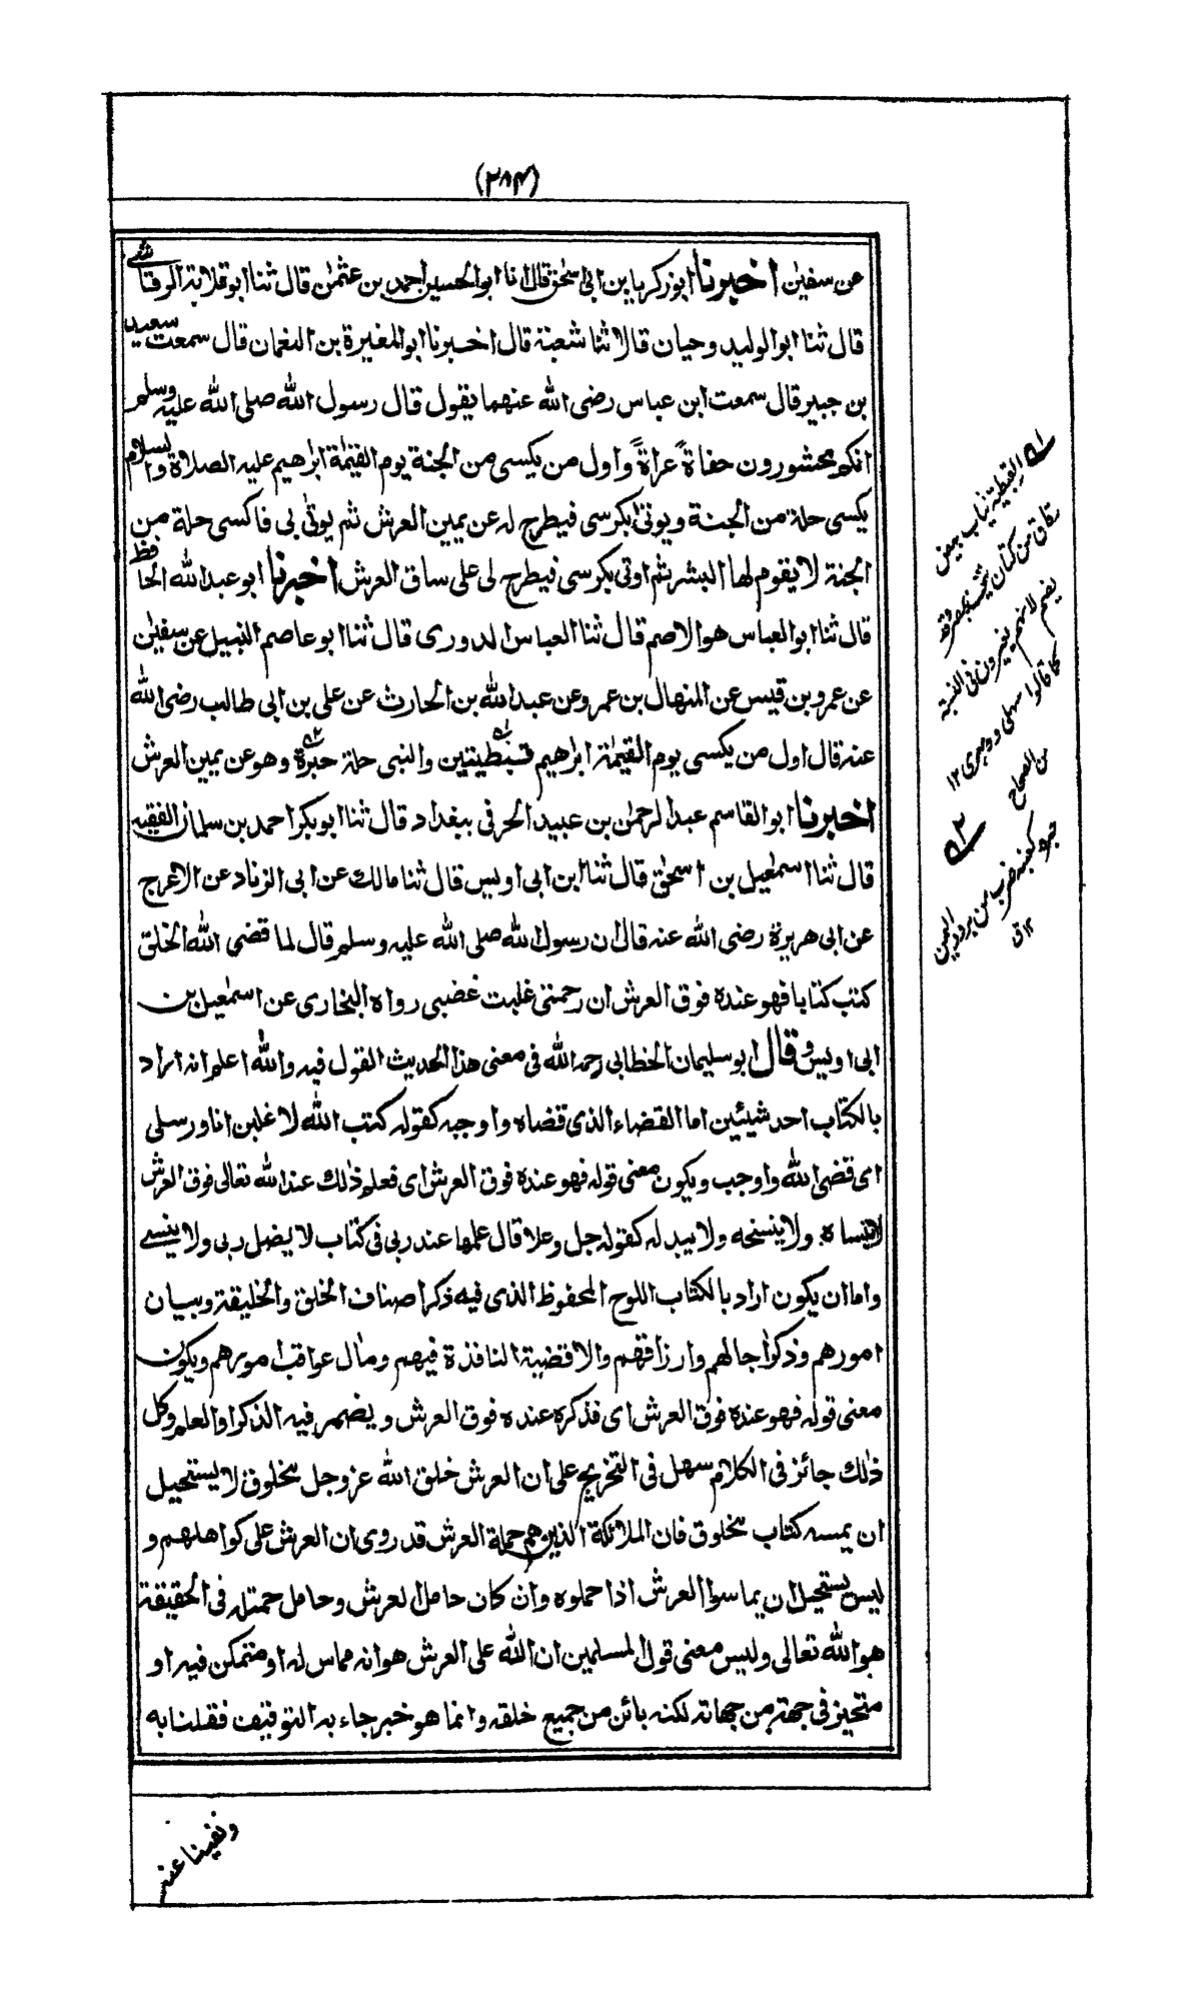 (٢٨٤)
عن سفين اخبرنا ابو زكريا بن ابى اسحٰق قال انا ابو الحسين احمد بن عثمٰن قال ثنا ابو قلابة الرقاشى
قال ثنا ابو الوليد وحبان قالا ثنا شعبة قال اخبرنا ابو المغيرة بن النعمان قال سمعت سعيد
بن جبير قال سمعت ابن عباس رضى الله عنهما يقول قال رسول الله صلى الله عليه وسلم
انكم محشورون حفاةً عراةً واول من يكسى من الجنة يوم القيٰمة ابراهيم عليه الصلاة والسلام
يكسى حلة من الجنة ويوتى بكرسى فيطرح له عن يمين العرش ثم يوتى بى فاكسى حلة من
الجنة لا يقوم لها البشر ثم اوتى بكرسى فيطرح لى على ساق العرش اخبرنا ابو عبد الله الحافظ
قال ثنا ابو العباس هو الاصم قال ثنا العباس الدورى قال ثنا ابو عاصم النبيل عن سفيٰن
عن عمرو بن قيس عن المنهال بن عمرو عن عبد الله بن الحارث عن على بن ابى طالب رضى الله
عنه قال اول من يكسى يوم القيٰمة ابراهيم قبطيتين والنبى حلة حبرة وهو عن يمين العرش
اخبرنا ابو القاسم عبد الرحمٰن بن عبيد الحرفى ببغداد قال ثنا ابو بكر احمد بن سلمان الفقيه
قال ثنا اسمٰعيل بن اسحٰق قال ثنا ابن ابى اويس قال ثنا مالك عن ابى الزناد عن الاعرج
عن ابى هريرة رضى الله عنه قال ان رسول الله صلى الله عليه وسلم قال لما قضى الله الخلق
كتب كتابا فهو عنده فوق العرش ان رحمتى غلبت غضبى رواه البخارى عن اسمٰعيل بن
ابى اويس وقال ابو سليمان الخطابى رحمه الله فى معنى هذا الحديث القول فيه والله اعلم انه اراد
بالكتاب احد شيئين اما القضاء الذى قضاه واوجبه كقوله كتب الله لاغلبن انا ورسلى
اى قضى الله واوجب ويكون معنى قوله فهو عنده فوق العرش اى فعلم ذٰلك عند الله تعالى فوق العرش
لا ينساه ولا ينسخه ولا يبدله كقوله جل وعلا قال علمها عند ربى فى كتاب لا يضل ربى ولا ينسى
واما ان يكون اراد بالكتاب اللوح المحفوظ الذى فيه ذكر اصناف الخلق والخليقة وبيان
امورهم وذكر اجالهم وارزاقهم والاقضية النافذة فيهم ومال عواقب امورهم ويكون
معنى قوله فهو عنده فوق العرش اى فذكره عنده فوق العرش ويضمر فيه الذكر او العلم وكل
ذٰلك جائز فى الكلام سهل فى التخريج على ان العرش خلق الله عز وجل مخلوق لا يستحيل
ان يمسه كتاب مخلوق فان الملائكة الذين هم حملة العرش قد روى ان العرش على كواهلهم و
ليس يستحيل ان يماسوا العرش اذا حملوه وان كان حامل العرش وحامل حملته فى الحقيقة
هو الله تعالى وليس معنى قول المسلمين ان الله على العرش هو انه مماس له او متمكن فيه او
متحيز فى جهة من جهاته لكنه بائن من جميع خلقه وانما هو خبر جاء به التوقيف فقلنا به
ونفينا عنه
١ القبطية ثياب بيض
رقاق من كتان تتخذ بمصر وقد
يضم لانهم يغيرون فى النسبة
كما قالوا سهلى ودهرى ١٢
من الصحاح
٢
حبرة كعنبة ضرب من برود اليمن
١٢ ق